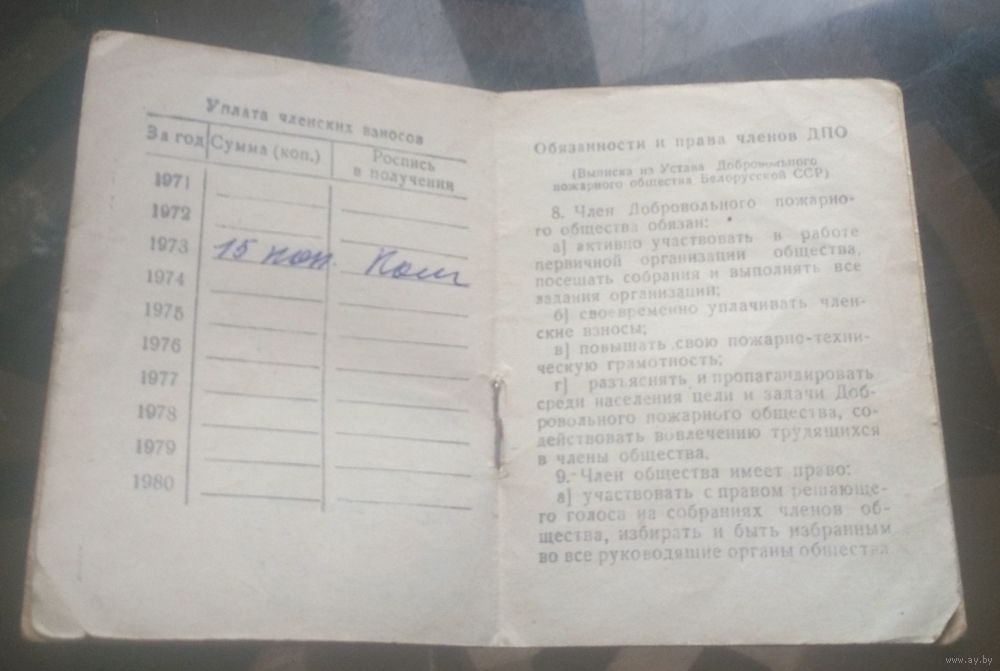 Уплата членских взносов
За год Сумма (коп.) Роспись в получении
1971
1972
1973 15 коп.
1974
1975
1976
1977
1978
1979
1980
Обязанности и права членов ДПО
(Выписка из Устава Добровольного
пожарного общества Белорусской ССР)
8. Член Добровольного пожарно-
го общества обязан:
а) активно участвовать в работе
первичной организации общества,
посещать собрания и выполнять все
задания организации;
б) своевременно уплачивать член-
ские взносы;
в) повышать свою пожарно-техни-
ческую грамотность;
г) разъяснять и пропагандировать
среди населения цели и задачи Доб-
ровольного пожарного общества, со-
действовать вовлечению трудящихся
в члены общества.
9. Член общества имеет право:
а) участвовать с правом решающе-
го голоса на собраниях членов об-
щества, избирать и быть избранным
во все руководящие органы общества
www.ay.by